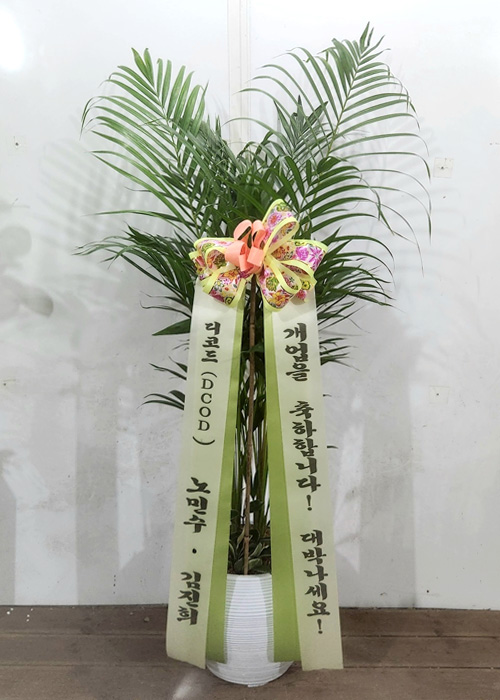 개업을 축하합니다! 대박나세요!
디코드(DCOD) 노민수·김진희